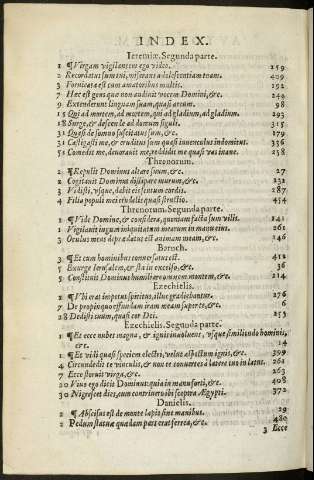 INDEX.
Ieremiæ. Segunda parte.
1 ¶ Virgam vigilantem ego video. 159
2 Recordatus sum tui, miserans adolescentiam tuam. 409
3 Fornicata es cum amatoribus multis. 192
7 Hæc est gens quæ non audiuit vocem Domini, &c. 249
9 Extenderunt linguam suam, quasi arcum. 98
15 Qui ad mortem, ad mortem, qui ad gladium, ad gladium. 293
18 Surge, & descende ad domum figuli. 315
31 Quasi de somno suscitatus sum, &c. 179
31 Castigasti me, & eruditus sum quasi iuuenculus indomitus. 336
51 Comedit me, deuorauit me, reddidit me quasi vas inane. 258
Threnorum.
2 ¶ Repulit Dominus altare suum, &c. 27
2 Cogitauit Dominus dissipare murum, &c. 231
3 Vidisti, ysque, dabis eis scutum cordis. 287
4 Filia populi mei crudelis quasi struthio. 454
Threnorum. Segunda parte.
1 ¶ Vide Domine, & considera, quoniam facta sum vilis. 141
1 Vigilauit iugum iniquitatum mearum in manu eius. 261
3 Oculus meus deprædatus est animam meam, &c. 146
Baruch.
3 ¶ Et cum hominibus conuersatus est. 412
5 Exurge Ierusalem, & sta in excelso, &c. 36
5 Constituit Dominus humiliare omnem montem, &c. 214
Ezechielis.
1 ¶ Vbi erat impetus spiritus, illuc gradiebantur. 276
7 De propinquo effundam iram meam super te, &c. 6
28 Dedisti cor tuum, quasi cor Dei. 253
Ezechielis. Segunda parte.
1 ¶ Et ecce nubes magna, & ignis inuoluens, vsque similitudo hominis,
&c. 14
1 ¶ Et vlti quasi speciem electri, velut aspectum ignis, &c. 399
4 Circundedi te vinculis, & non te conuertes à latere tuo in latus. 261
7 Ecce floruit virga, &c. 263
20 Viuo ego dicit Dominus: quia in manu forti, &c. 408
30 Nigrescet dies, cum contriuero ibi sceptra Ægypti. 372
Danielis.
2 ¶ Abscissus est de monte lapis sine manibus. 29
2 Pedum statuæ quædam pars erat ferrea, &c. 480
3 Ecce